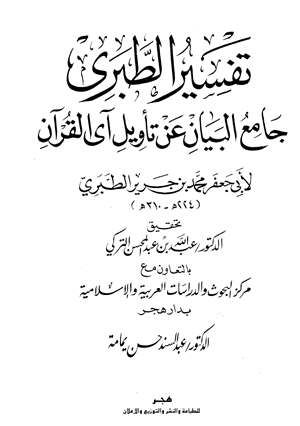 تفسير الطبري
جامع البيان عن تأويل آي القرآن
لأبي جعفر محمد بن جرير الطبري
(٢٢٤هـ - ٣١٠هـ)
تحقيق
الدكتور عبد الله بن عبد المحسن التركي
بالتعاون مع
مركز البحوث والدراسات العربية والإسلامية
بدار هجر
الدكتور عبد السند حسن يمامة
هجر
للطباعة والنشر والتوزيع والإعلان